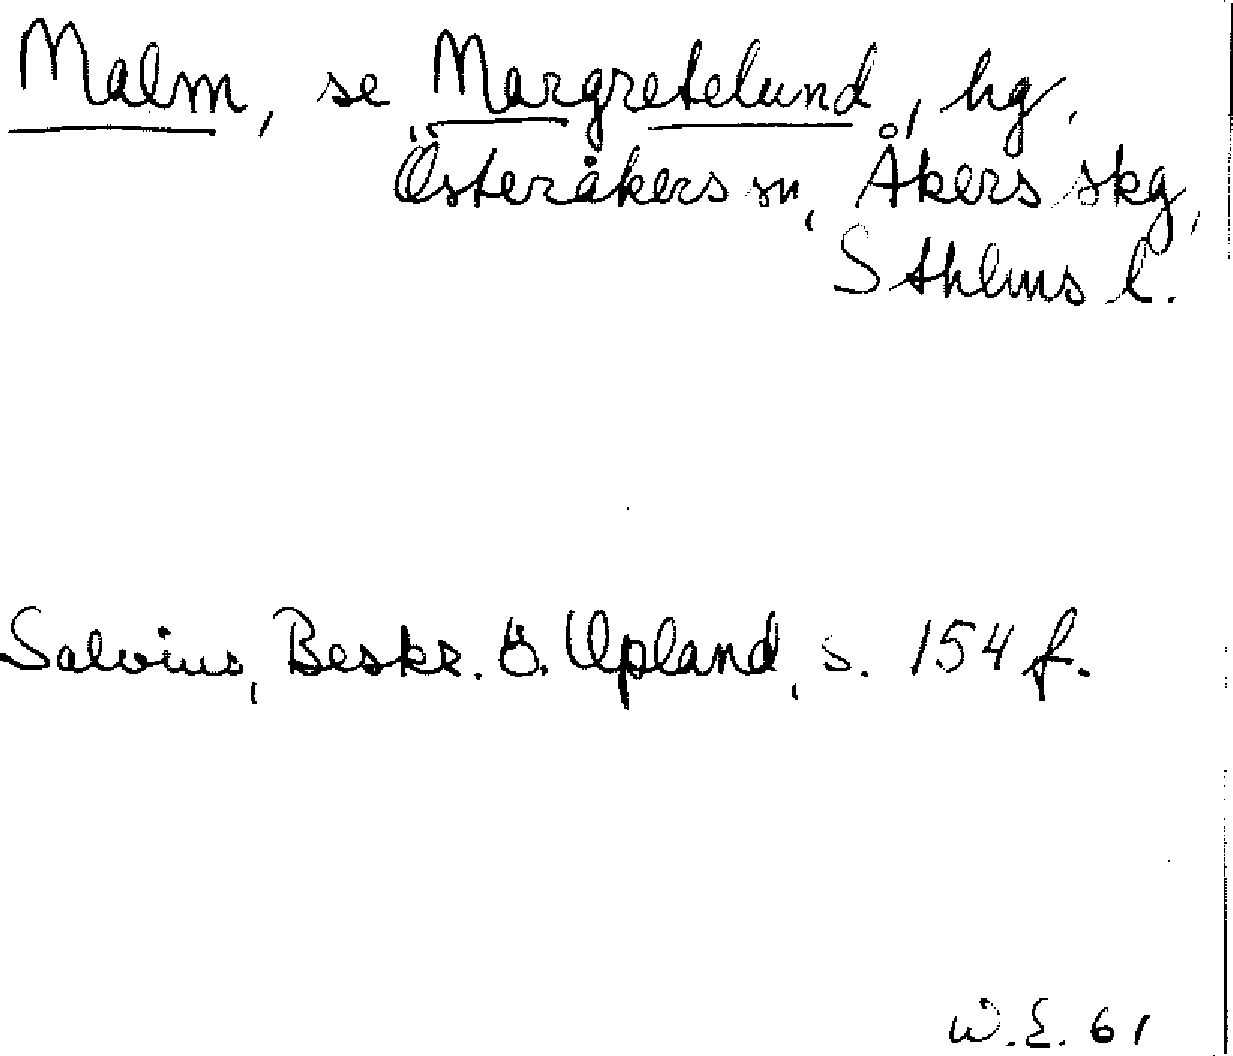 Malm, se Margretelund, hg,
Österåkers sn, Åkers skg,
Sthlms l.
Salvius, Beskr. ö. Upland, s. 154 f.
W.E. 61